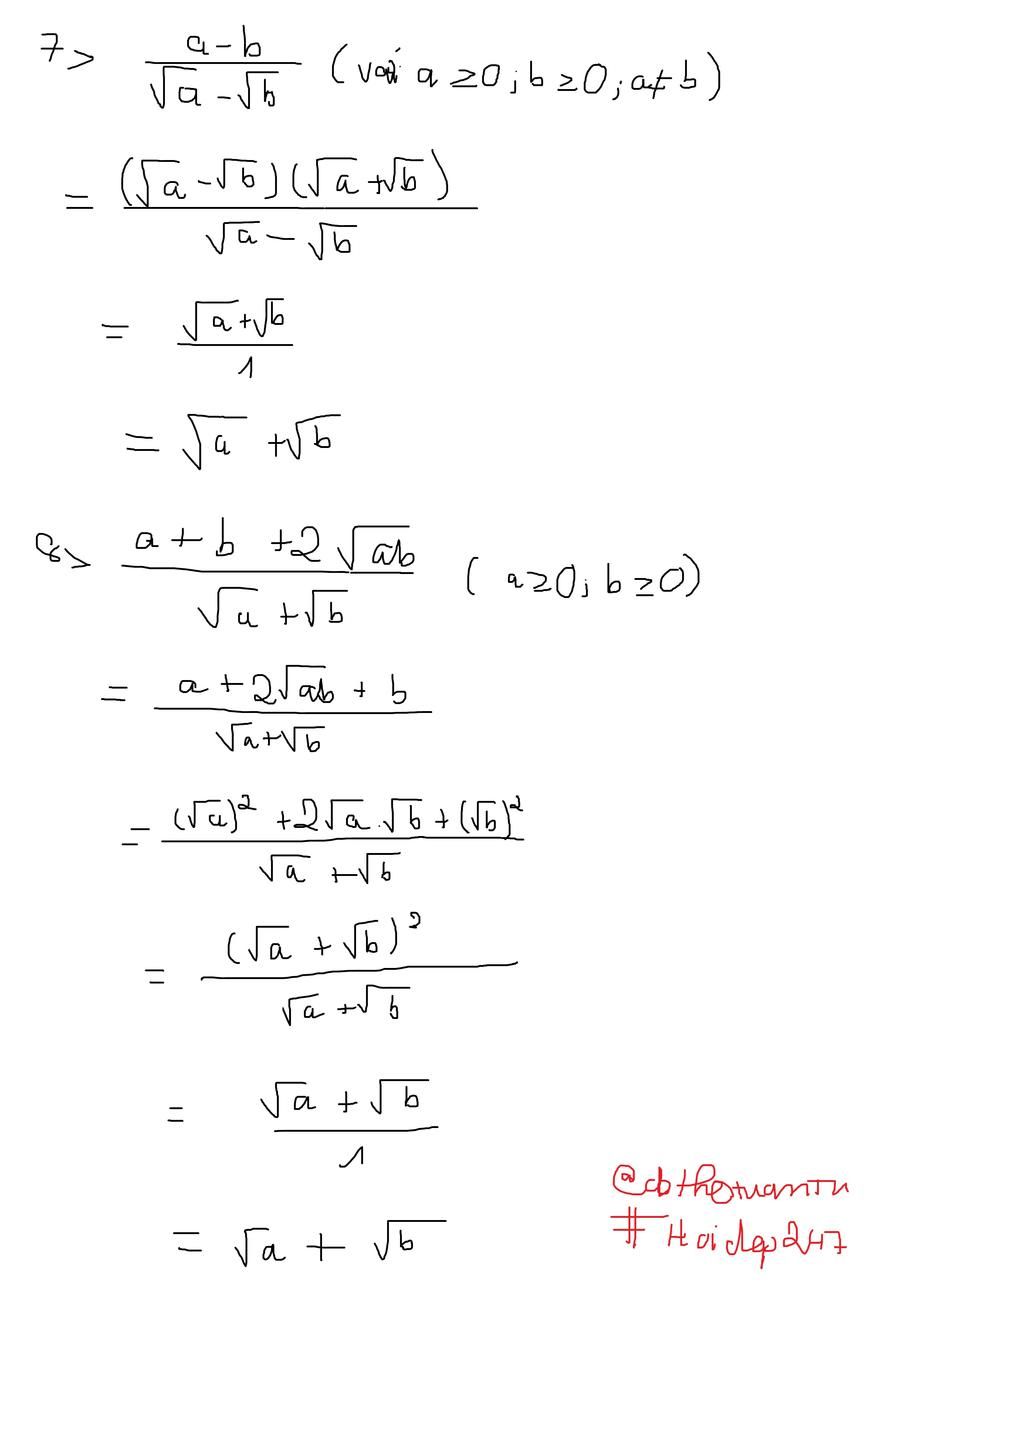 7> a-b / √a - √b (với a ≥ 0 ; b ≥ 0 ; a ≠ b)
= (√a - √b) (√a + √b) / √a - √b
= √a + √b / 1
= √a + √b
8> a + b + 2√ab / √a + √b ( a ≥ 0 ; b ≥ 0)
= a + 2√ab + b / √a + √b
= (√a)² + 2√a.√b + (√b)² / √a + √b
= (√a + √b)² / √a + √b
= √a + √b / 1
= √a + √b
#Hoidap247